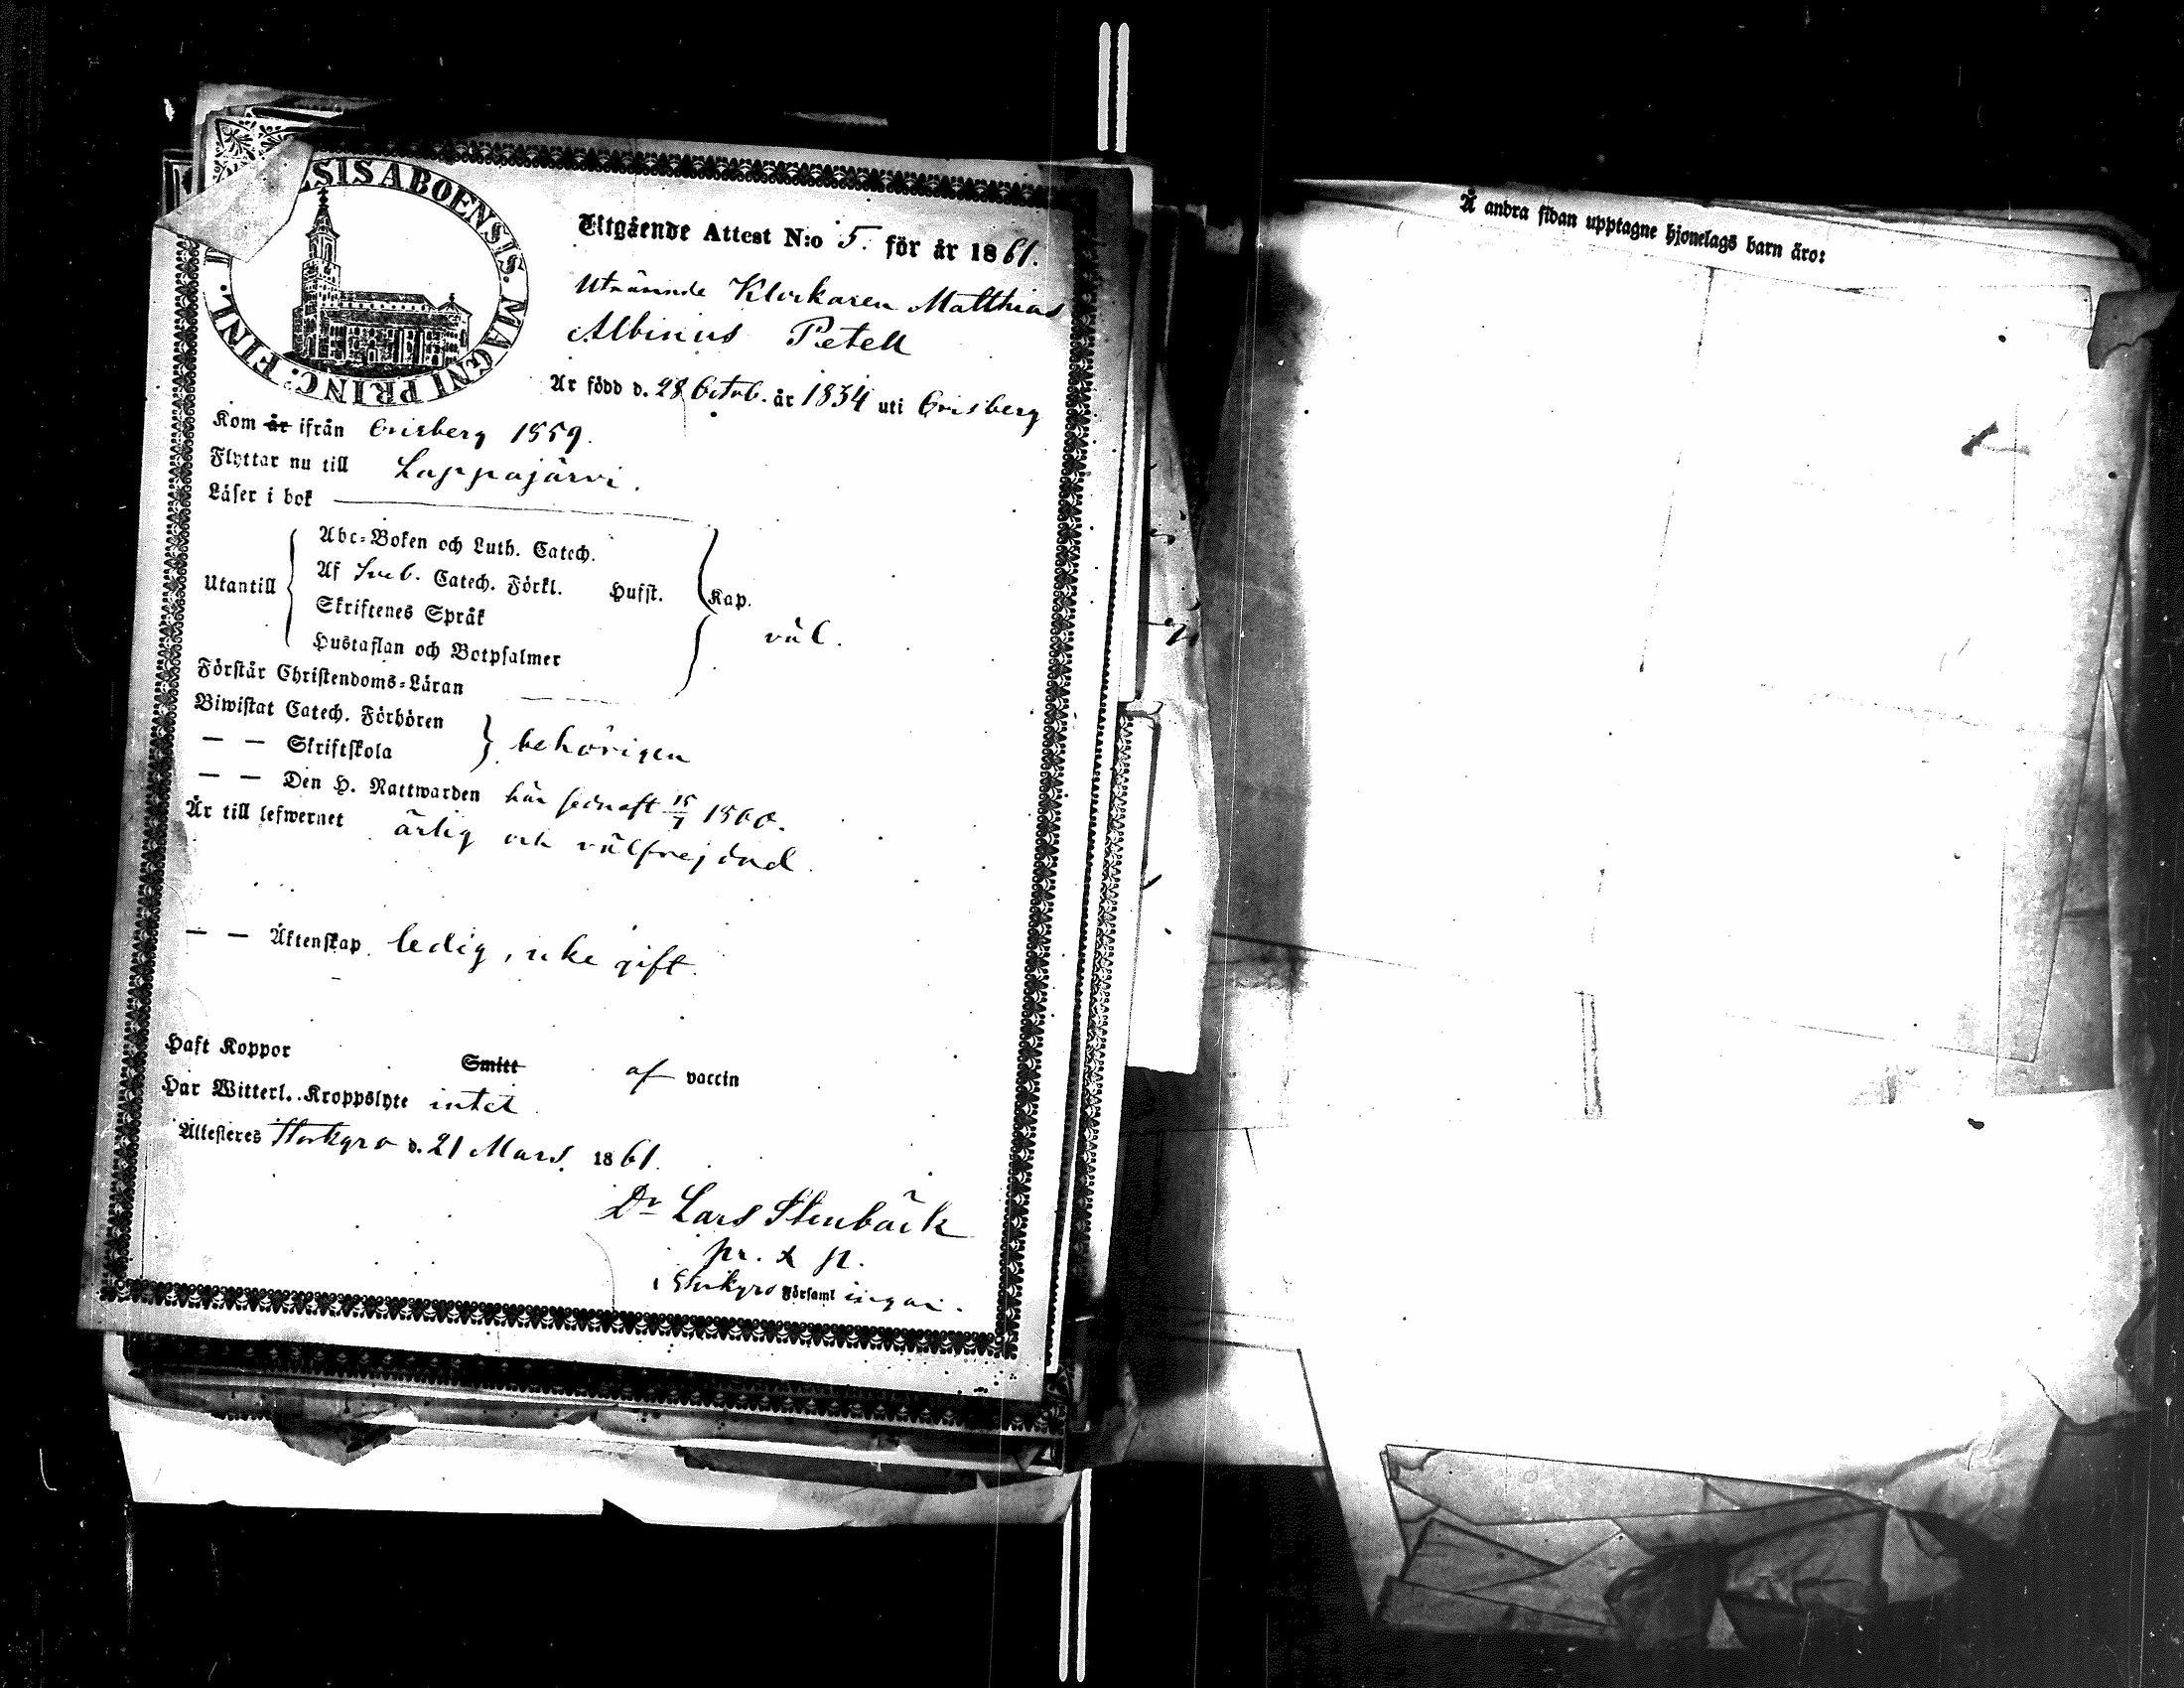 SIS ABOENSIS. MAGNI PRINC: FINL.
Utgående Attest N:o 5. för år 1861.
Utnämnde Klockaren Matthias
Albinus Petell
Är född d. 28 Octob. år 1834 uti Orisberg
Kom år ifrån Orisberg 1859.
Flyttar nu till Lappajärvi.
Läser i bok
Utantill
Abc-Boken och Luth. Catech.
Af Sveb. Catech. Förkl. Hufst. Kap.
Skriftenes Språk
väl.
Hustaflan och Botpsalmer
Förstår Christendoms-Läran
Biwistat Catech. Förhören
— — Skriftskola
behörigen
— — Den H. Nattwarden här sednast 15/7 1860.
Är till lefwernet ärlig och välfrejdad.
— — Äktenskap ledig, icke gift.
Haft Koppor Smitt af vaccin
Har Witterl. Kroppslyte intet
Attesteres Storkyro d. 21 Mars 1861.
Dr Lars Stenbäck
pr. & p.
i Storkyro Församl ingar.
Å andra sidan upptagne hjonelags barn äro: